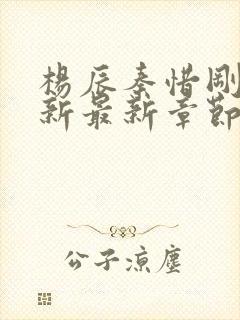 楊辰秦惜剛
新最新章節
公子涼塵